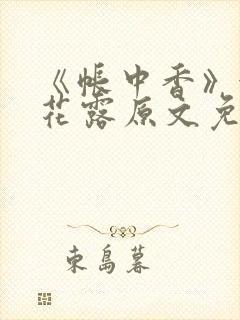 《帐中香》
花露原文免
東島暮